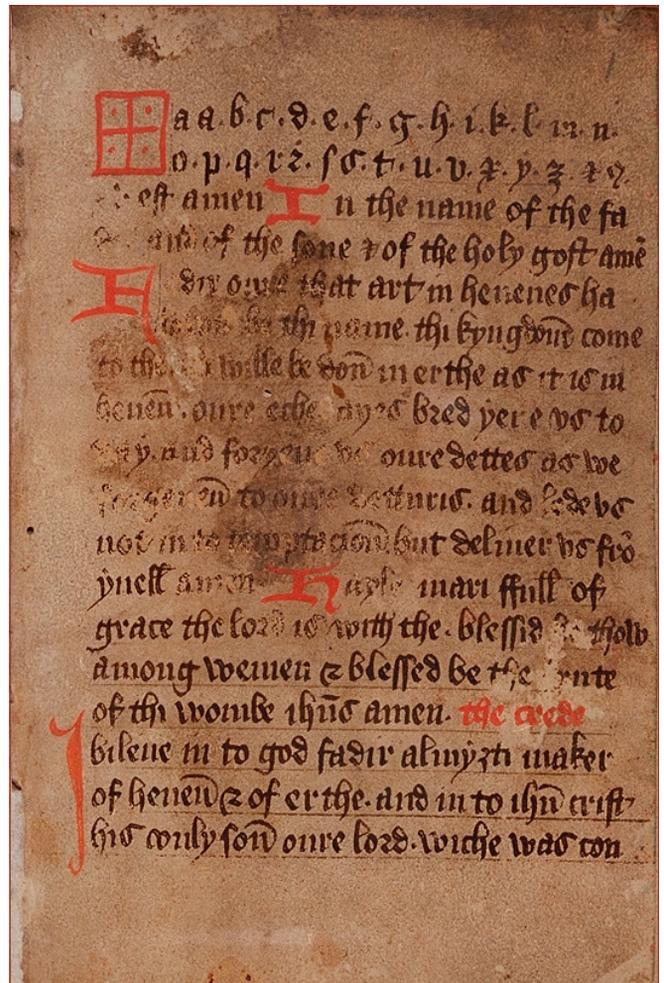 a a . b . c . d . e . f . g . h . i . k . l . m . n .
o . p . q . r ꝛ . ſ s . t . u . v . x . y . ȝ . ⁊
est amen In the name of the fa
of the sone ⁊ of the holy gost amē
Fadir oure that art in heuenes ha
be thi name . thi kyngdom̄ come
to the wille be don̄ in erthe as it is in
heuen̄ . oure eche dayes bred yeve vs to
day . and foryeue vs oure dettes as we
foryeuen̄ to oure detturis . and lede vs
not in to temptacion̄ but deliuer vs frō
yuell amen Hayle mari ffull of
grace the lord is with the . blessid be thow
among wemen ⁊ blessed be the frute
of thi wombe ihūs amen . the crede
I bileue in to god fadir almyȝti maker
of heuen̄ ⁊ of erthe . and in to ihū crist
his oonly son̄ oure lord . wiche was con